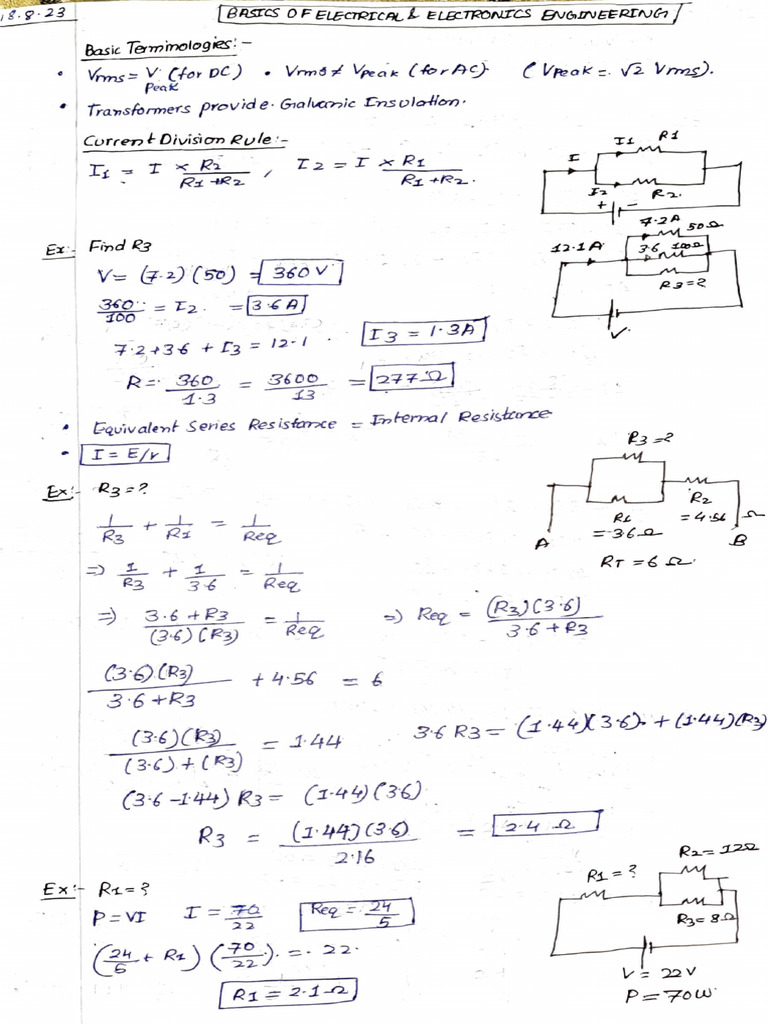 18.8.23
BASICS OF ELECTRICAL & ELECTRONICS ENGINEERING
Basic Terminologies:-
• Vrms = Vpeak (for DC) • Vrms ≠ Vpeak (for AC) (Vpeak = √2 Vrms).
• Transformers provide Galvanic Insulation.
Current Division Rule:-
I1 = I × R2 / R1+R2 , I2 = I × R1 / R1+R2.
I I1 R1
I2 R2
+ -
Ex:- Find R3
V = (7.2)(50) = 360V
360/100 = I2 = 3.6A
7.2+3.6+I3 = 12.1 I3 = 1.3A
R = 360/1.3 = 3600/13 = 277Ω
7.2A 50Ω
12.1A 3.6 100Ω
R3=?
V
• Equivalent Series Resistance = Internal Resistance
• I = E/r
Ex:- R3=?
1/R3 + 1/R1 = 1/Req
⇒ 1/R3 + 1/3.6 = 1/Req
⇒ 3.6+R3 / (3.6)(R3) = 1/Req ⇒ Req = (R3)(3.6) / 3.6+R3
(3.6)(R3) / 3.6+R3 + 4.56 = 6
(3.6)(R3) / (3.6)+(R3) = 1.44 3.6 R3 = (1.44)(3.6) + (1.44)(R3)
(3.6-1.44) R3 = (1.44)(3.6)
R3 = (1.44)(3.6) / 2.16 = 2.4 Ω
R3=?
R1 = 3.6Ω
R2 = 4.56 Ω
A B
RT = 6 Ω.
Ex:- R1=?
P=VI I = 70/22 Req = 24/5
(24/5 + R1)(70/22) = 22.
R1 = 2.1Ω
R2 = 12Ω
R1 = ?
R3 = 8Ω
V = 22V
P = 70W